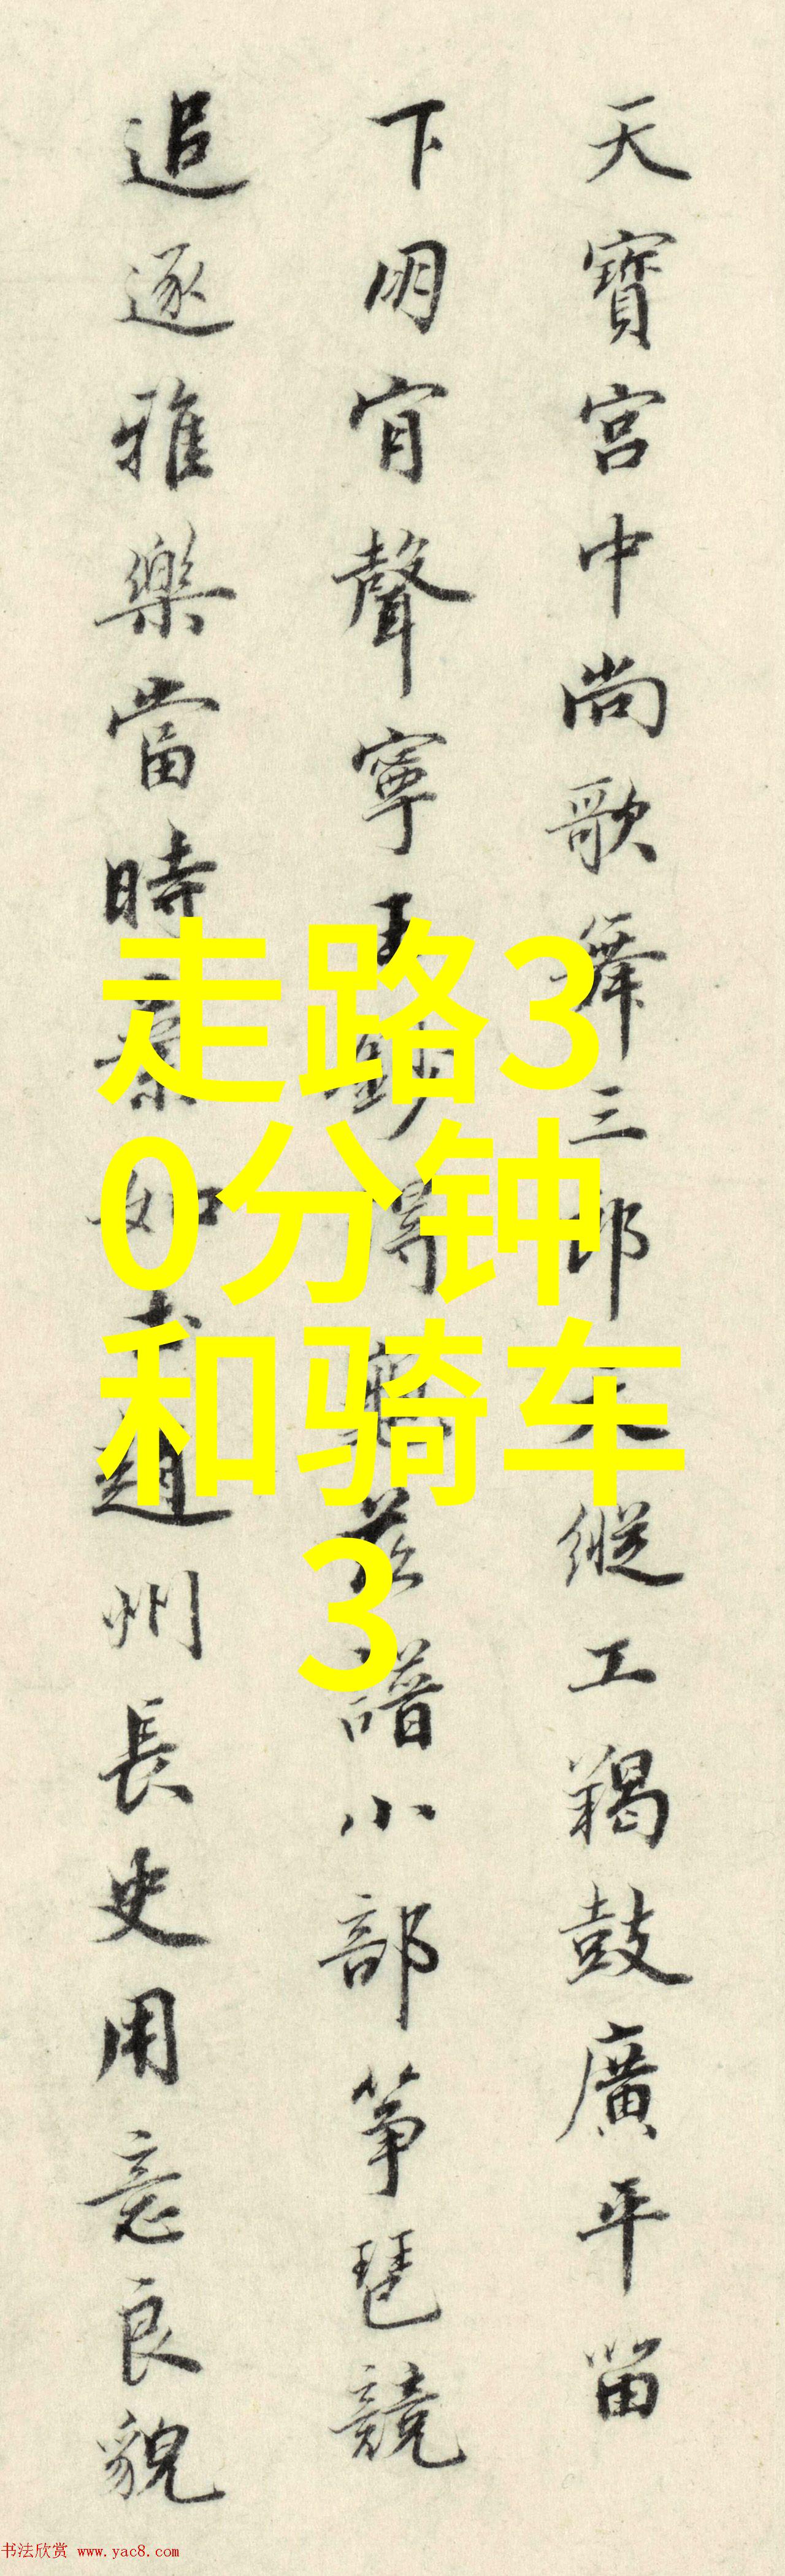 天寶宮中尚歌舞三郎天縱工羯鼓廣平留
下朋肯聲寧王得龜茲譜小部箏琶競
追逐雅樂當時如趙州長史用意良貌
走路3
0分钟
和骑车
3
书法欣赏 www.yac8.com